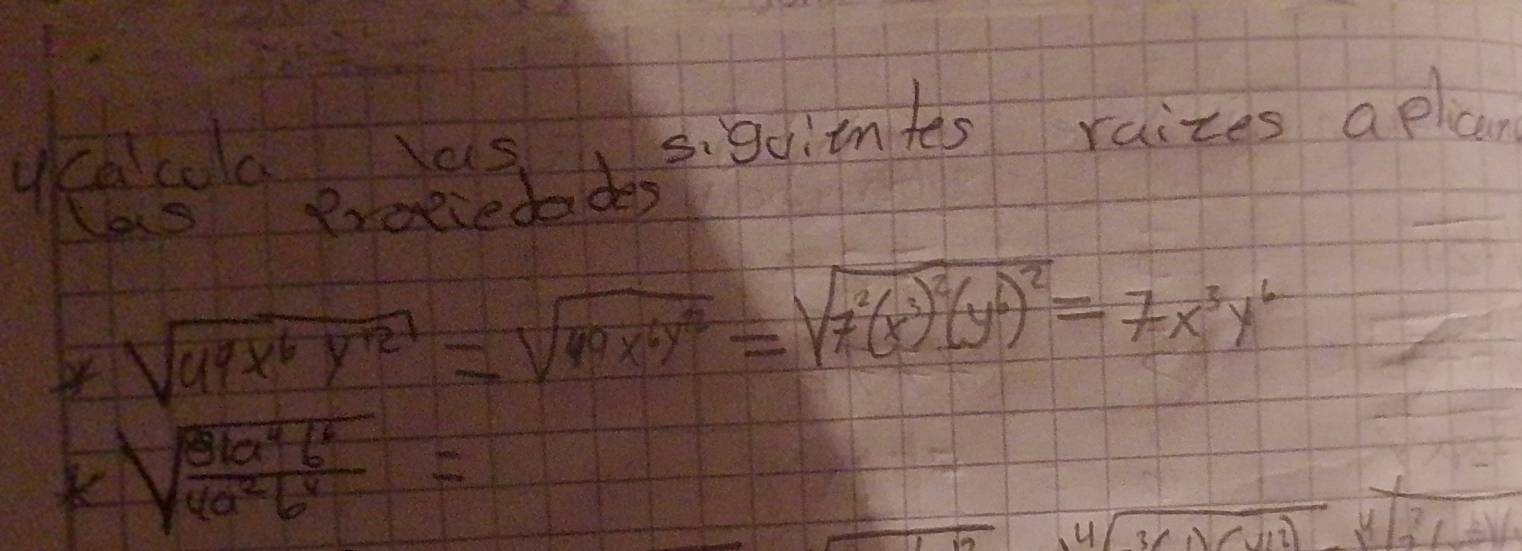 4 Calcula las siguientes raizes
las Propiedades
* √(49x⁶ y¹²) = √(49x⁶y¹²) = √(7²(x³)²(y⁶)²) = 7x³y⁶
* √(81a⁴b⁶/4a²b⁴) =